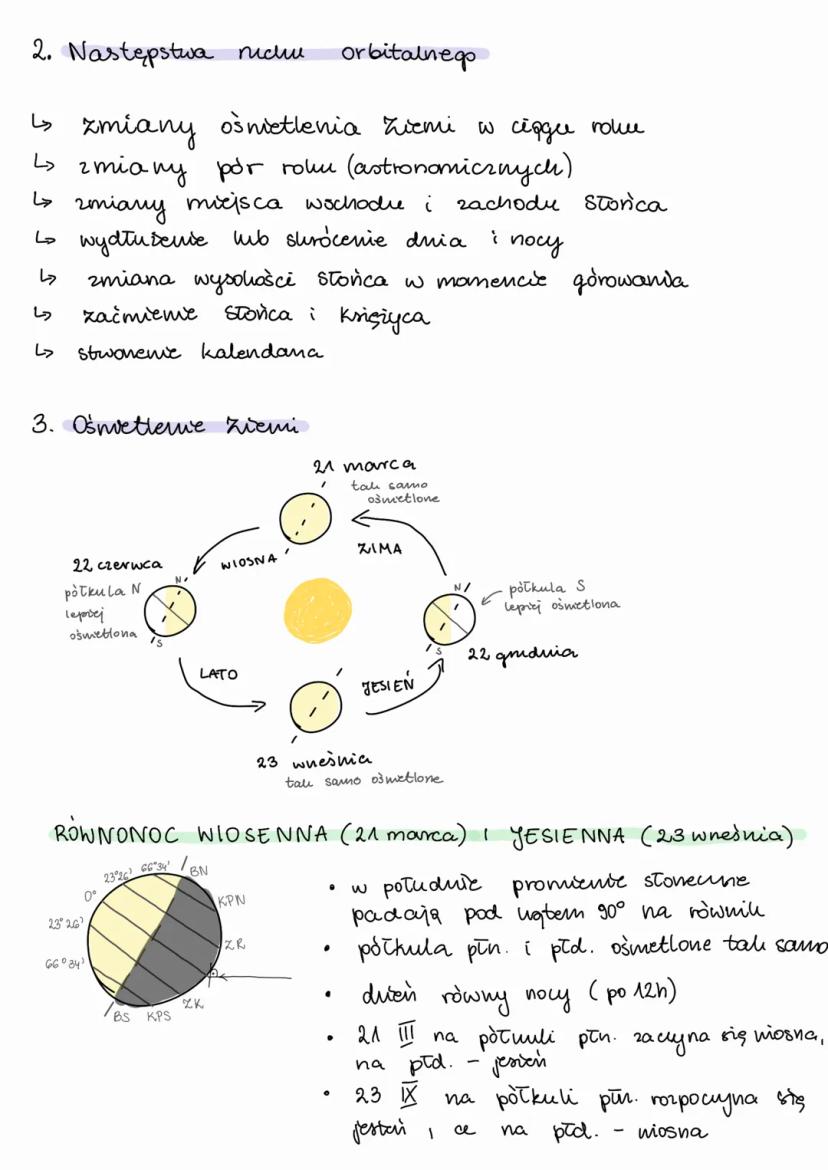 2. Następstwa ruchu orbitalnego
↳ zmiany oświetlenia Ziemi w ciągu roku
↳ zmiany pór roku (astronomicznych)
↳ zmiany miejsca wschodu i zachodu Słońca
↳ wydłużenie lub skrócenie dnia i nocy
↳ zmiana wysokości Słońca w momencie górowania
↳ zaćmienie Słońca i Księżyca
↳ stworzenie kalendarza
3. Oświetlenie Ziemi
21 marca
tak samo
oświetlone
WIOSNA
ZIMA
22 czerwca
półkula N
lepiej
oświetlona
N
S
N
S
półkula S
lepiej oświetlona
22 grudnia
LATO
JESIEŃ
23 września
tak samo oświetlone
RÓWNONOC WIOSENNA (21 marca) I JESIENNA (23 września)
66°34'
23°26'
0°
23°26'
66°34'
BN
KPN
ZR
ZK
KPS
BS
• w południe promienie słoneczne
padają pod kątem 90° na równik
• półkula płn. i płd. oświetlone tak samo
• dzień równy nocy (po 12h)
• 21 III na półkuli płn. zaczyna się wiosna,
na płd. - jesień
• 23 IX na półkuli płn. rozpoczyna się
jesień, ce na płd. - wiosna